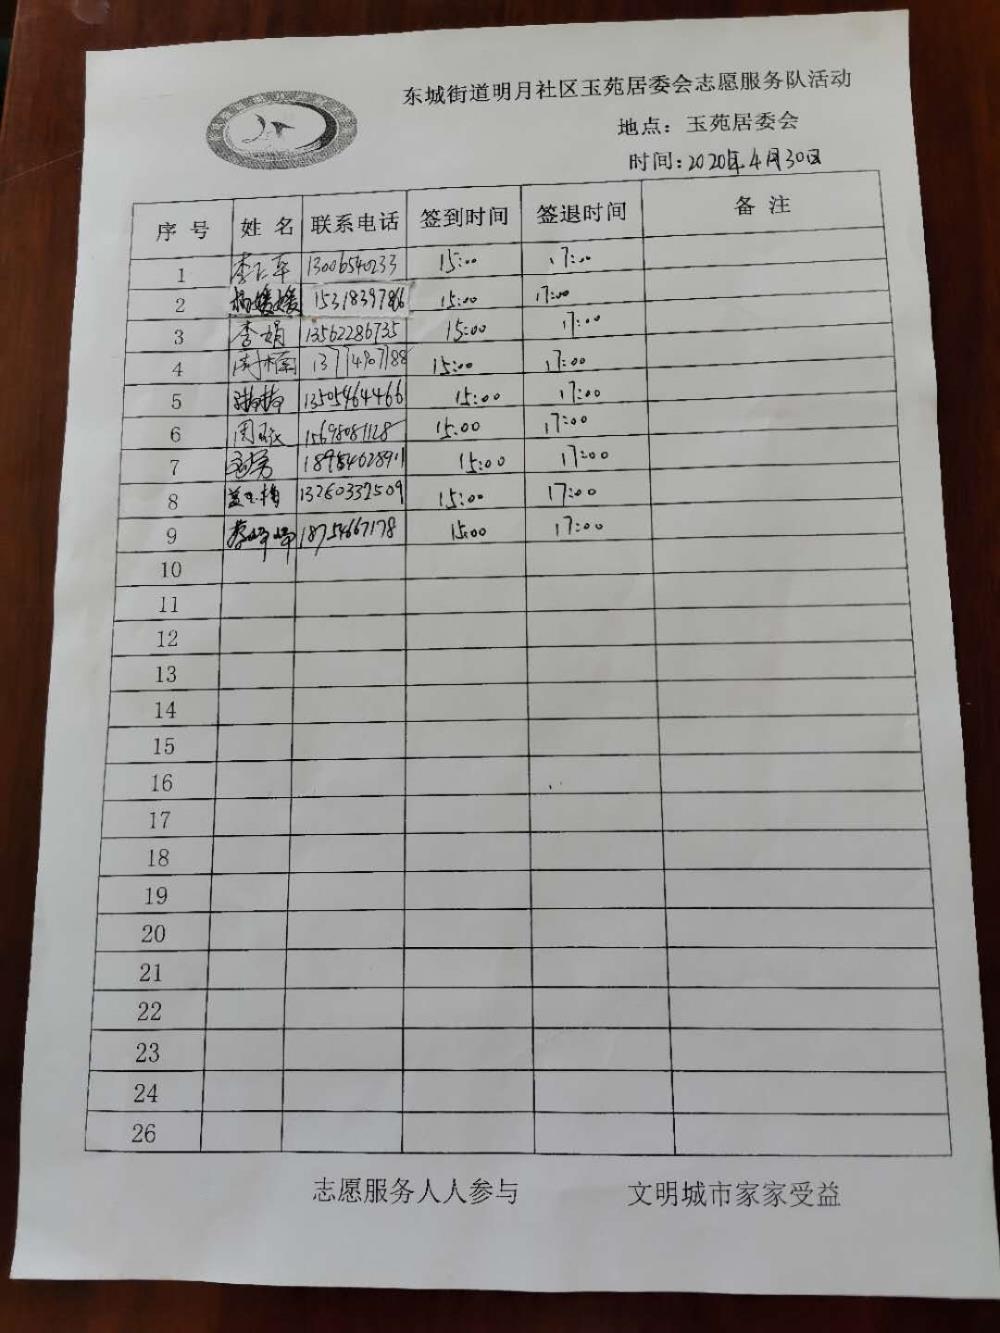 东城街道明月社区玉苑居委会志愿服务队活动
地点：玉苑居委会
时间：2020年4月30日
序号 姓名 联系电话 签到时间 签退时间 备注
1 13006540233 15:00 17:00
2 杨媛媛 15318397866 15:00 17:00
3 李娟 13562286735 15:00 17:00
4 周楠 13774907188 15:00 17:00
5 13505464466 15:00 17:00
6 15698081128 15:00 17:00
7 15:00 17:00
8 13260332509 15:00 17:00
9 18754667178 15:00 17:00
10
11
12
13
14
15
16
17
18
19
20
21
22
23
24
26
志愿服务人人参与 文明城市家家受益